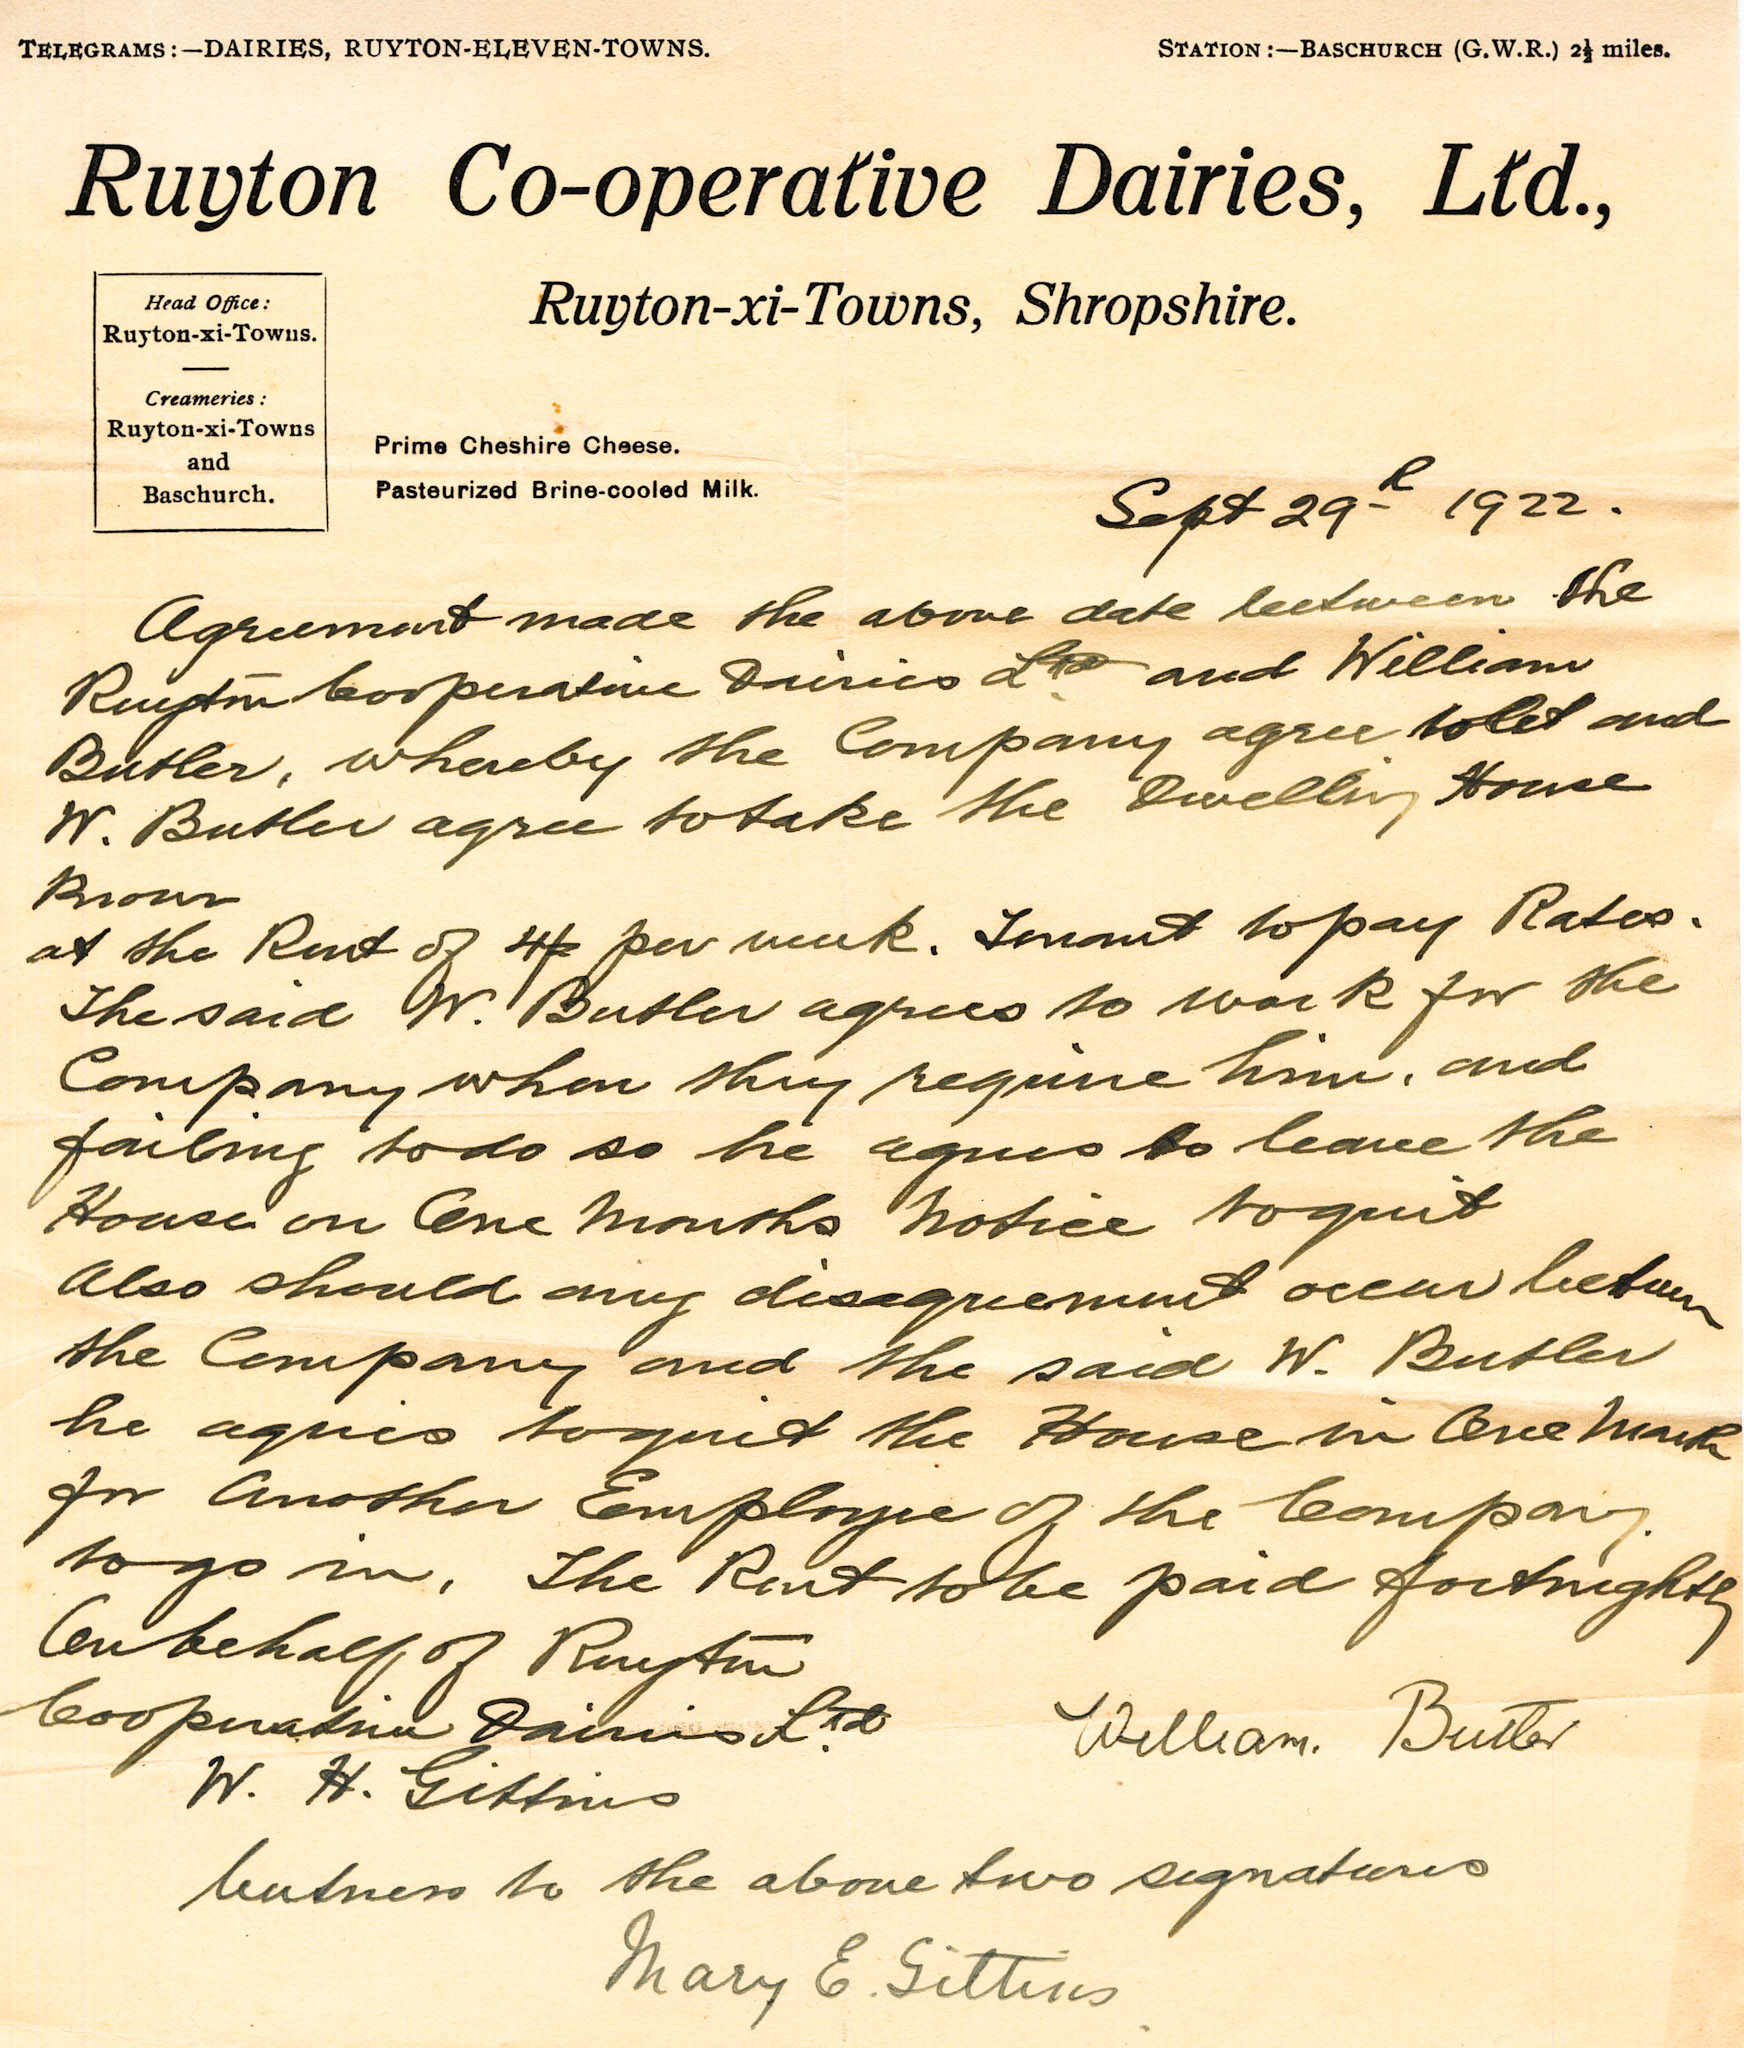 TELEGRAMS:—DAIRIES, RUYTON-ELEVEN-TOWNS.
STATION:—BASCHURCH (G.W.R.) 2½ miles.
Ruyton Co-operative Dairies, Ltd.,
Ruyton-xi-Towns, Shropshire.
Head Office:
Ruyton-xi-Towns.
Creameries:
Ruyton-xi-Towns
and
Baschurch.
Prime Cheshire Cheese.
Pasteurized Brine-cooled Milk.
Sept 29th 1922.
Agreement made the above date between the
Ruyton Cooperative Dairies Ltd and William
Butler, whereby the Company agree to let and
W. Butler agree to take the Dwelling House
Known
at the Rent of 4/- per week. Tenant to pay Rates.
The said W. Butler agrees to work for the
Company when they require him, and
failing to do so he agrees to leave the
House on One Months Notice to quit
Also should any disagreement occur between
the Company and the said W. Butler
he agrees to quit the House in One Month
for Another Employee of the Company
to go in. The Rent to be paid fortnightly
On behalf of Ruyton
Cooperative Dairies Ltd
William. Butler
W. H. Gittins
Witness to the above two signatures
Mary E. Gittins